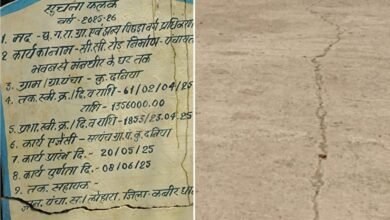 सूचना फलक
वर्ष - 2025-26
1. मद - छ.ग.रा.ग्रा.एवं अन्य पिछड़ा वर्ग प्राधिकरण
2. कार्य का नाम - सी.सी. रोड निर्माण - पंचायत
भवन से मनधीर के घर तक
3. ग्राम/ग्रा.पंचा - कु. दनिया
4. तक.स्वी.क्र/दि.व राशि - 61/02/04/25
राशि - 1356000.00
5. प्रशा.स्वी.क्र/दि.व राशि - 1853/23.04.25
6. कार्य एजेंसी - सरपंच ग्रा.पं. कु. दनिया
7. कार्य प्रारंभ दि. - 20/05/25
8. कार्य पूर्णता दि. - 08/06/25
9. तक. सहायक -
पंचा. स./लोहारा, जिला-कबीरधाम